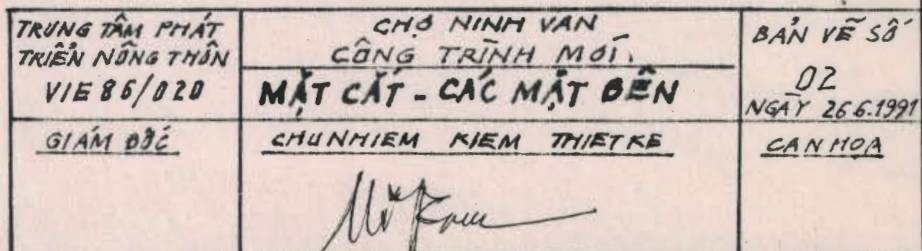 TRUNG TÂM PHÁT
TRIỂN NÔNG THÔN
VIE 86/020
CHỢ NINH VAN
CÔNG TRÌNH MOÍ.
MẶT CẮT - CÁC MẶT BÊN
BẢN VẼ SỐ
02
NGAỲ 26.6.1991
GIÁM ĐỐC
CHUNHIEM KIEM THIETKE
CANHOA